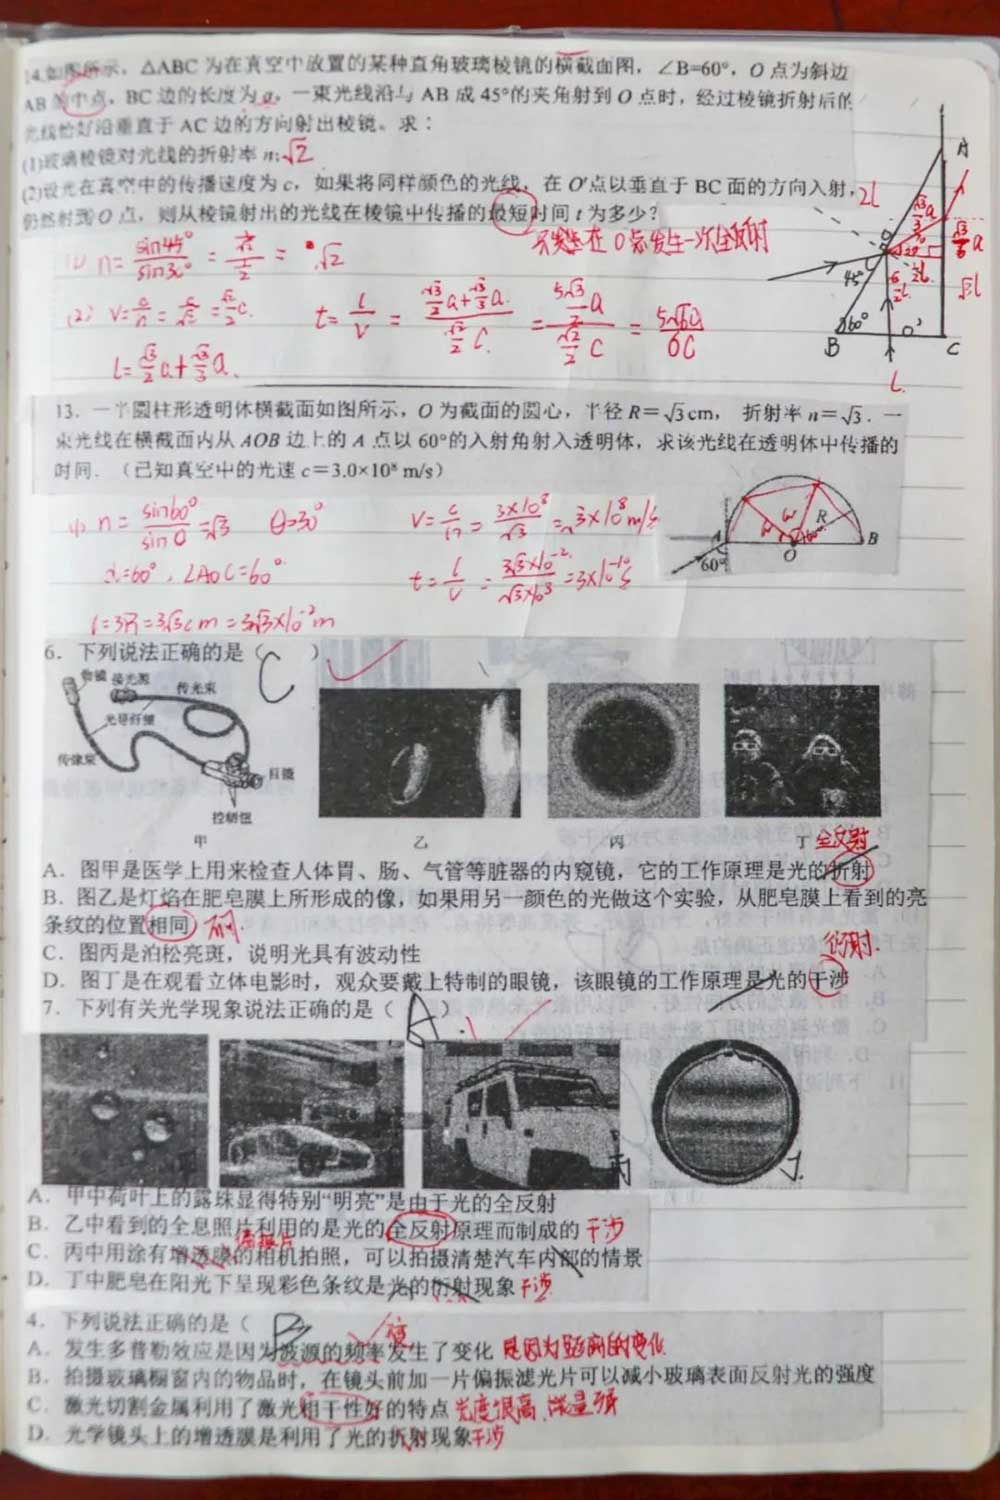 14.如图所示，△ABC为在真空中放置的某种直角玻璃棱镜的横截面图，∠B=60°，O点为斜边
AB的中点，BC边的长度为a，一束光线沿与AB成45°的夹角射到O点时，经过棱镜折射后的
光线恰好沿垂直于AC边的方向射出棱镜。求：
(1)玻璃棱镜对光线的折射率n; √2
(2)设光在真空中的传播速度为c，如果将同样颜色的光线，在O'点以垂直于BC面的方向入射，
仍然射到O点，则从棱镜射出的光线在棱镜中传播的最短时间t为多少？
在O点发生一次全反射
(1) n=sin45°/sin30°= = √2
(2) v=c/n=c/√2=√2/2 c. t=l/v=(√3/2 a+√3/3 a)/(√2/2 c)
l=√3/2 a+√3/3 a.
A
2l
45°
60°
B
O'
C
L
13. 一半圆柱形透明体横截面如图所示，O为截面的圆心，半径R=√3cm， 折射率n=√3. 一
束光线在横截面内从AOB边上的A点以60°的入射角射入透明体，求该光线在透明体中传播的
时间. （已知真空中的光速c=3.0×10⁸ m/s）
(1) n=sin60°/sinθ=√3 θ=30° v=c/n=3×10⁸/√3=√3×10⁸m/s
α=60°，∠AOC=60° t=l/v=3√3×10⁻²/√3×10⁸=3×10⁻¹⁰s
l=3R=3√3cm=3√3×10⁻²m
A
O
R
B
60°
6. 下列说法正确的是（C ）
物镜 接光源
传光束
光导纤维
传像束
目镜
控制钮
甲 乙 丙 丁
全反射
A. 图甲是医学上用来检查人体胃、肠、气管等脏器的内窥镜，它的工作原理是光的折射
B. 图乙是灯焰在肥皂膜上所形成的像，如果用另一颜色的光做这个实验，从肥皂膜上看到的亮
条纹的位置相同
C. 图丙是泊松亮斑，说明光具有波动性
衍射.
D. 图丁是在观看立体电影时，观众要戴上特制的眼镜，该眼镜的工作原理是光的干涉
7. 下列有关光学现象说法正确的是（ A ）
丙
丁
A. 甲中荷叶上的露珠显得特别“明亮”是由于光的全反射
B. 乙中看到的全息照片利用的是光的全反射原理而制成的 干涉
偏振片
C. 丙中用涂有增透膜的相机拍照，可以拍摄清楚汽车内部的情景
D. 丁中肥皂在阳光下呈现彩色条纹是光的衍射现象 干涉
4. 下列说法正确的是（ B
A. 发生多普勒效应是因为波源的频率发生了变化 是因为距离的变化
B. 拍摄玻璃橱窗内的物品时，在镜头前加一片偏振滤光片可以减小玻璃表面反射光的强度
C. 激光切割金属利用了激光相干性好的特点 亮度很高、能量强
D. 光学镜头上的增透膜是利用了光的折射现象 干涉